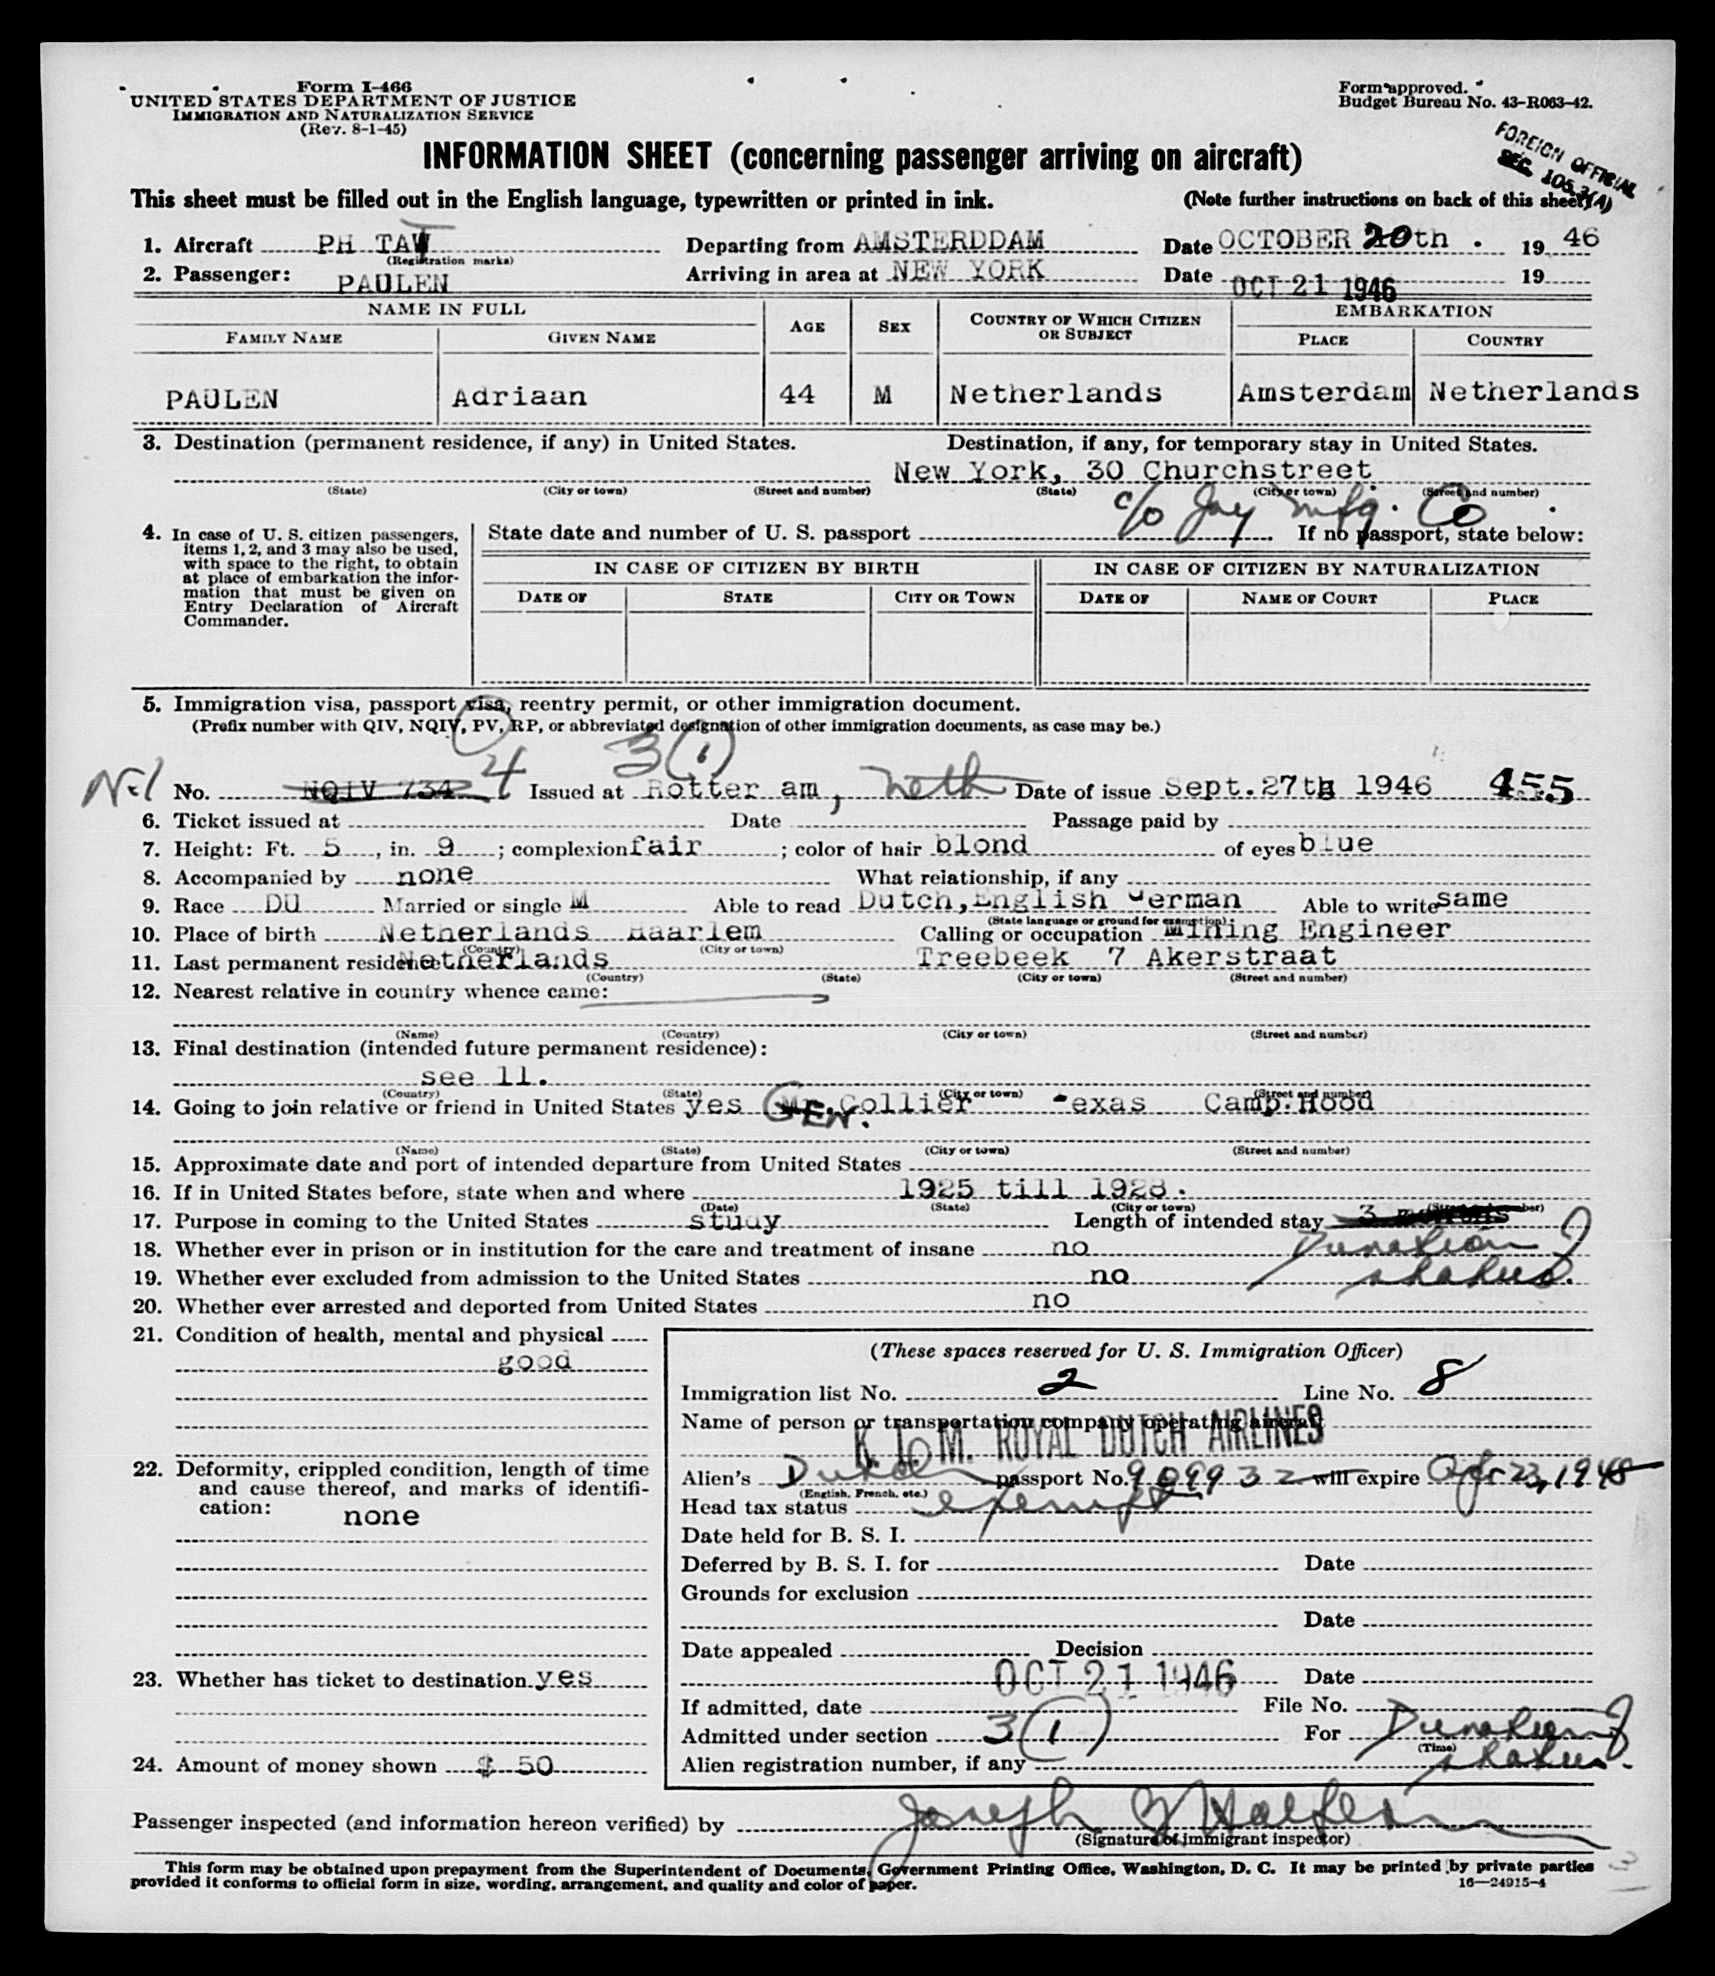 Form I-466
UNITED STATES DEPARTMENT OF JUSTICE
IMMIGRATION AND NATURALIZATION SERVICE
(Rev. 8-1-45)
Form approved.
Budget Bureau No. 43-R063-42.
FOREIGN OFFICIAL
SEC. 105.3(A)
INFORMATION SHEET (concerning passenger arriving on aircraft)
This sheet must be filled out in the English language, typewritten or printed in ink. (Note further instructions on back of this sheet)
1. Aircraft PH TAT Departing from AMSTERDDAM Date OCTOBER 20th . 19 46
(Registration marks)
2. Passenger: PAULEN Arriving in area at NEW YORK Date OCT 21 1946 19
NAME IN FULL AGE SEX COUNTRY OF WHICH CITIZEN OR SUBJECT EMBARKATION
FAMILY NAME GIVEN NAME PLACE COUNTRY
PAULEN Adriaan 44 M Netherlands Amsterdam Netherlands
3. Destination (permanent residence, if any) in United States. Destination, if any, for temporary stay in United States.
New York, 30 Churchstreet
(State) (City or town) (Street and number) (State) (City or town) (Street and number)
c/o Joy Mfg. Co
4. In case of U. S. citizen passengers, items 1, 2, and 3 may also be used, with space to the right, to obtain at place of embarkation the information that must be given on Entry Declaration of Aircraft Commander.
State date and number of U. S. passport If no passport, state below:
IN CASE OF CITIZEN BY BIRTH IN CASE OF CITIZEN BY NATURALIZATION
DATE OF STATE CITY OR TOWN DATE OF NAME OF COURT PLACE
5. Immigration visa, passport visa, reentry permit, or other immigration document.
(Prefix number with QIV, NQIV, PV, RP, or abbreviated designation of other immigration documents, as case may be.)
4 3(1)
No. NQIV 734 Issued at Rotter am, Neth Date of issue Sept.27th 1946 455
6. Ticket issued at Date Passage paid by
7. Height: Ft. 5, in. 9; complexion fair; color of hair blond of eyes blue
8. Accompanied by none What relationship, if any
9. Race DU Married or single M Able to read Dutch, English German Able to write same
(State language or ground for exemption)
10. Place of birth Netherlands Haarlem Calling or occupation Mining Engineer
(Country) (City or town)
11. Last permanent residence Netherlands Treebeek 7 Akerstraat
(Country) (State) (City or town) (Street and number)
12. Nearest relative in country whence came:
(Name) (Country) (City or town) (Street and number)
13. Final destination (intended future permanent residence):
see 11.
(Country) (State) (City or town) (Street and number)
14. Going to join relative or friend in United States yes Mr. GEN. Collier Texas Camp.Hood
(Name) (State) (City or town) (Street and number)
15. Approximate date and port of intended departure from United States
16. If in United States before, state when and where 1925 till 1928.
(Date) (State) (City or town) (Street and number)
17. Purpose in coming to the United States study Length of intended stay 3 months
Duration of
status.
18. Whether ever in prison or in institution for the care and treatment of insane no
19. Whether ever excluded from admission to the United States no
20. Whether ever arrested and deported from United States no
21. Condition of health, mental and physical
good
22. Deformity, crippled condition, length of time and cause thereof, and marks of identification: none
23. Whether has ticket to destination yes
24. Amount of money shown $ 50
(These spaces reserved for U. S. Immigration Officer)
Immigration list No. 2 Line No. 8
Name of person or transportation company operating aircraft
K. L. M. ROYAL DUTCH AIRLINES
Alien's Dutch passport No. 909932 will expire Apr 23, 1948
(English, French, etc.)
Head tax status exempt
Date held for B. S. I.
Deferred by B. S. I. for Date
Grounds for exclusion
Date
Date appealed Decision
OCT 21 1946 Date
If admitted, date File No.
Admitted under section 3(1) For Duration of
(Time)
status.
Alien registration number, if any
Passenger inspected (and information hereon verified) by Joseph
(Signature of immigrant inspector)
This form may be obtained upon prepayment from the Superintendent of Documents, Government Printing Office, Washington, D. C. It may be printed by private parties
provided it conforms to official form in size, wording, arrangement, and quality and color of paper.
16—24915-4